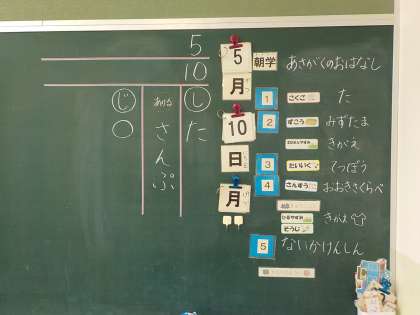 5
10
し
た
あした
さんぽ
じ
○
5
月
10
日
月
朝学 あさがくのおはなし
1 こくご た
2 ずこう みずたま
きがえ
3 たいいく てつぼう
4 さんすう おおきさくらべ
ひるやすみ きがえ
そうじ
5 ないかけんしん